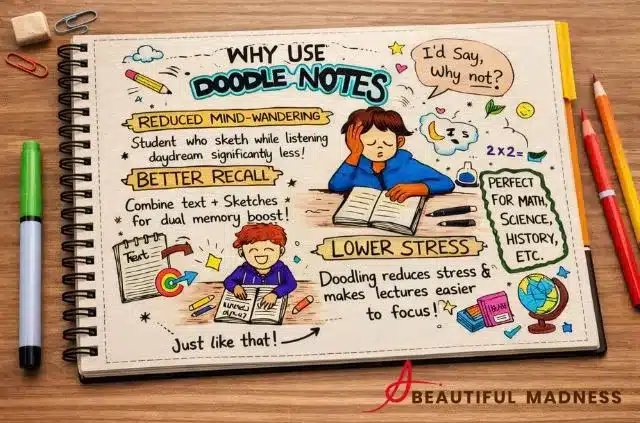 WHY USE
DOODLE NOTES
I'd Say,
Why not?
REDUCED MIND-WANDERING
Student who sketh while listening
daydream significantly less!
BETTER RECALL
Combine text + Sketches
for dual memory boost!
2x2=
PERFECT
FOR MATH,
SCIENCE,
HISTORY,
ETC.
Text
LOWER STRESS
Doodling reduces stress &
makes lectures easier
to focus!
Just like that!
A
BEAUTIFUL MADNESS